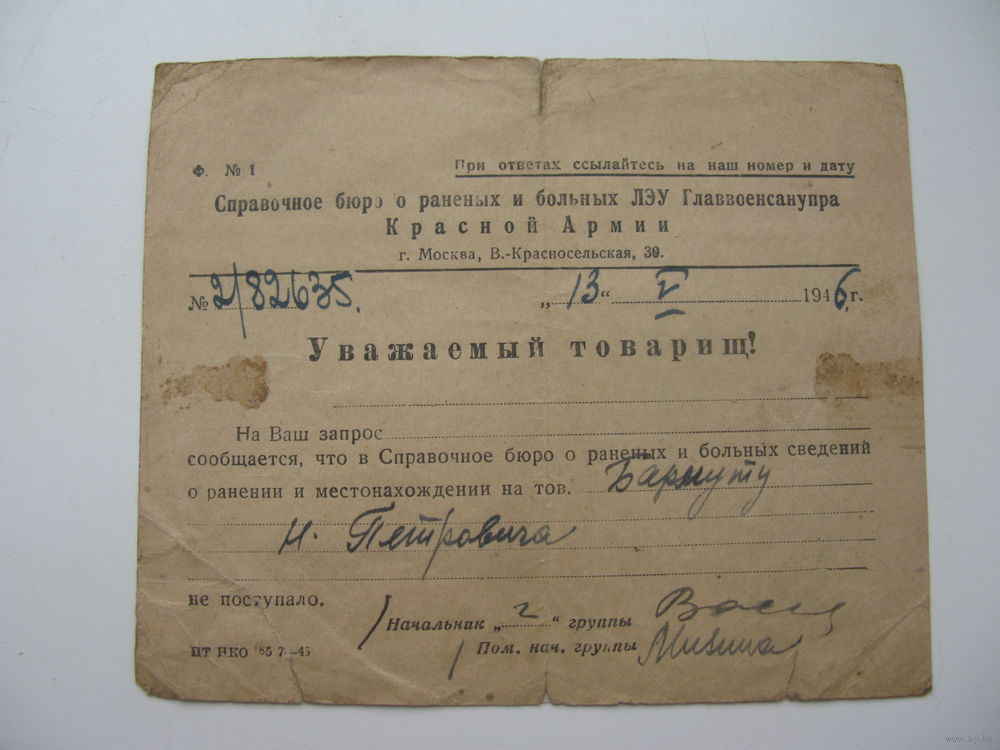 Ф. № 1
При ответах ссылайтесь на наш номер и дату
Справочное бюро о раненых и больных ЛЭУ Главвоенсанупра
Красной Армии
г. Москва, В.-Красносельская, 30.
№ 2/82635. „13“ V 1946 г.
Уважаемый товарищ!
На Ваш запрос
сообщается, что в Справочное бюро о раненых и больных сведений
о ранении и местонахождении на тов. Бармуту
Н. Петровича
не поступало.
Начальник „2“ группы
ПТ НКО 85 7-45 Пом. нач. группы
www.ay.by